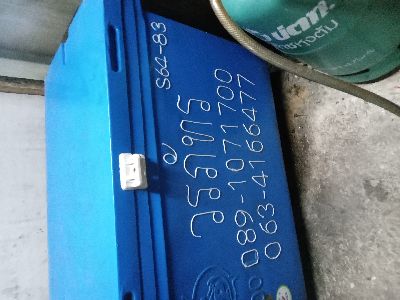 S64-83
วรภัทร
089-1071700
063-4166477